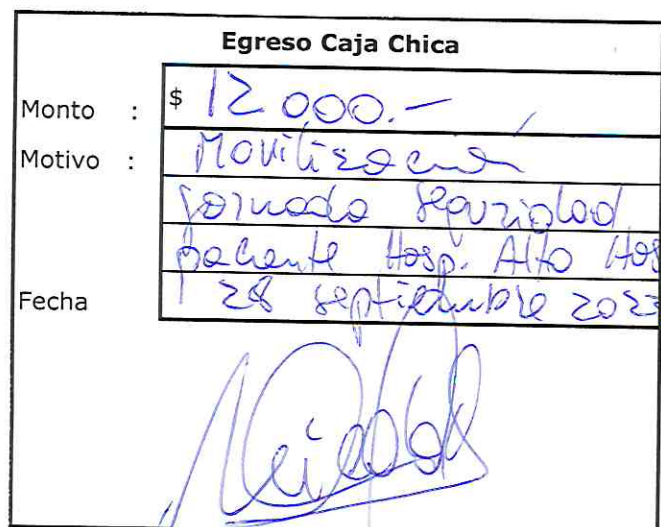 Egreso Caja Chica
Monto : $ 12 000.-
Motivo : Movilización
Jornada Seguridad
paciente Hosp. Alto Hos
Fecha 28 septiembre 2023